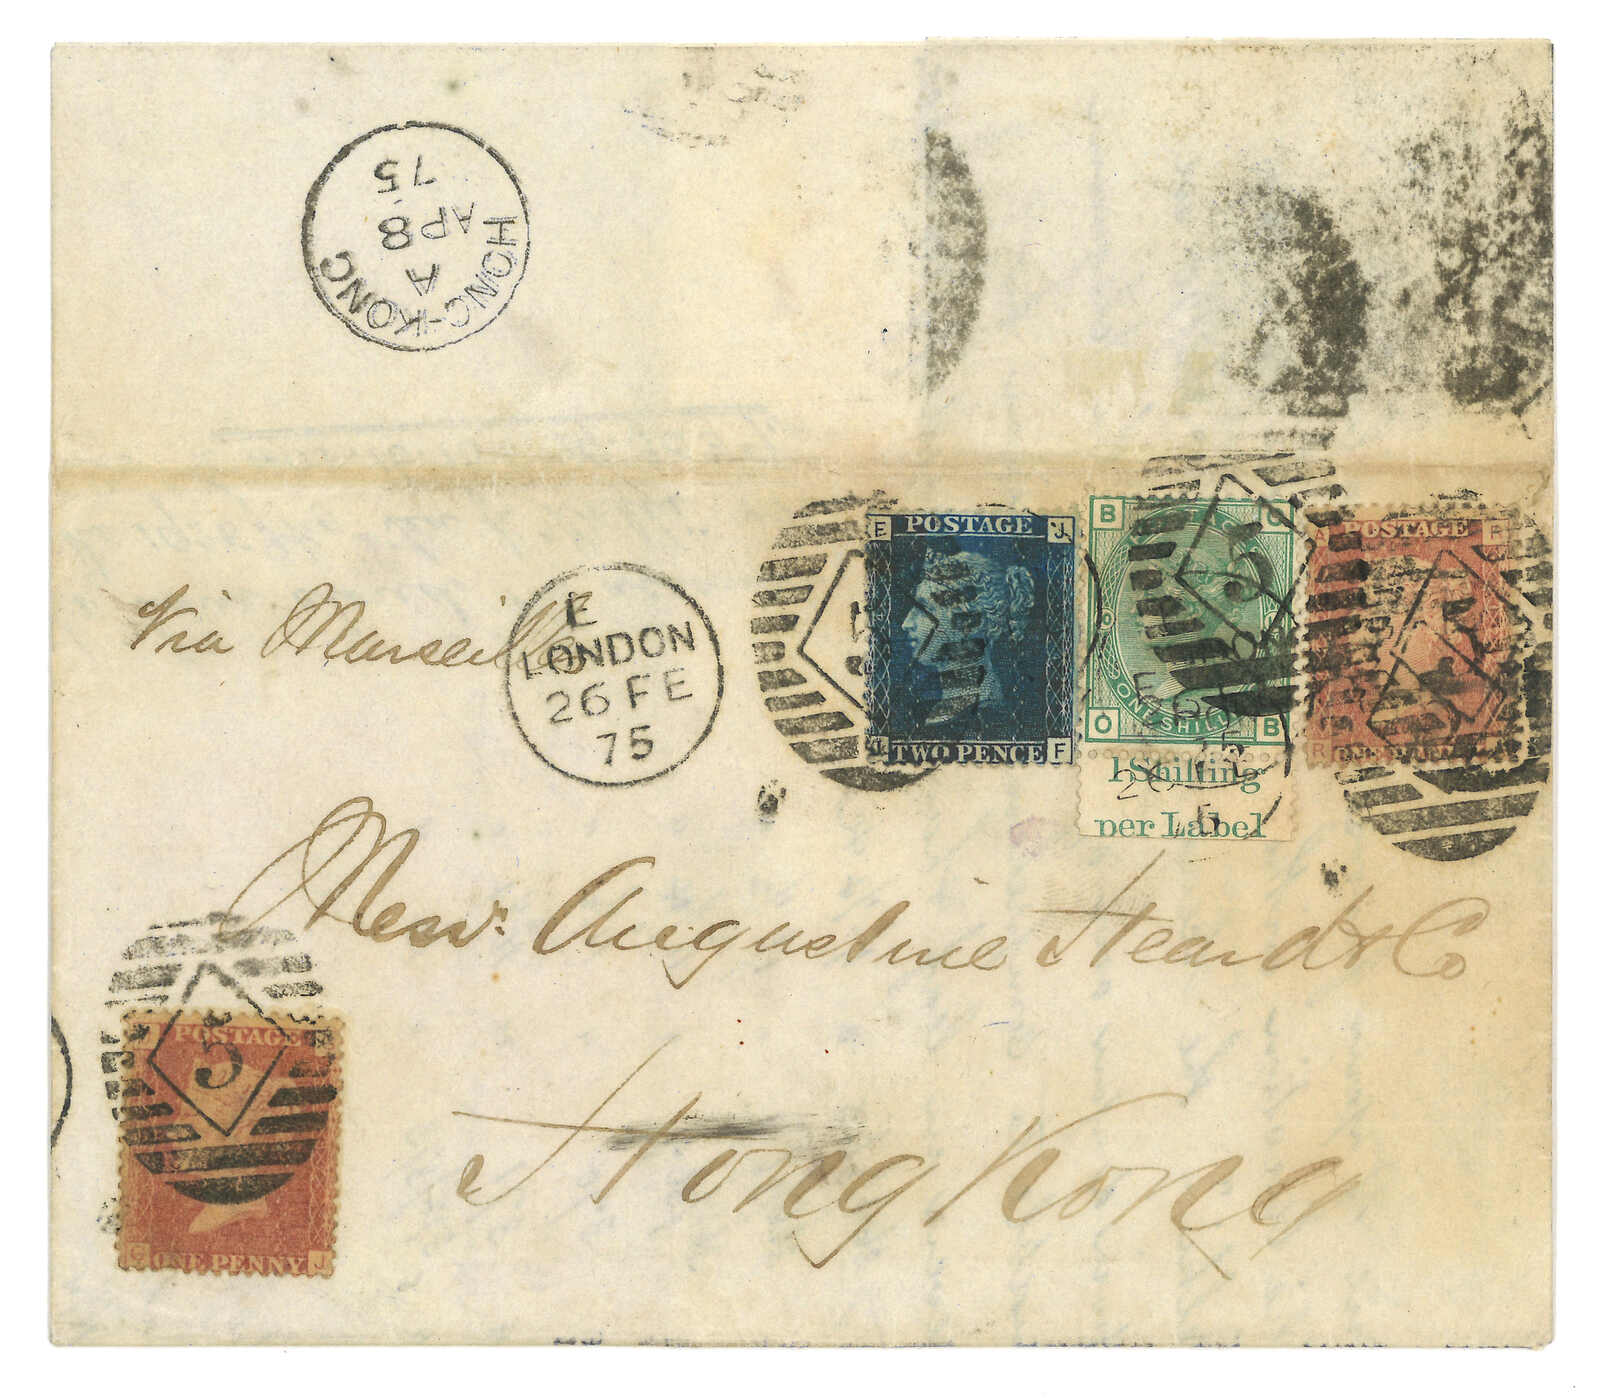 HONG-KONG
A
AP 8
75
Via Marseilles
E
LONDON
26 FE
75
E POSTAGE J
TWO PENCE F
B
O ONE SHILLING B
1 Shilling
per Label
A POSTAGE R
R
Messrs. Augustine Heard & Co
Hong Kong
POSTAGE
5
G ONE PENNY J